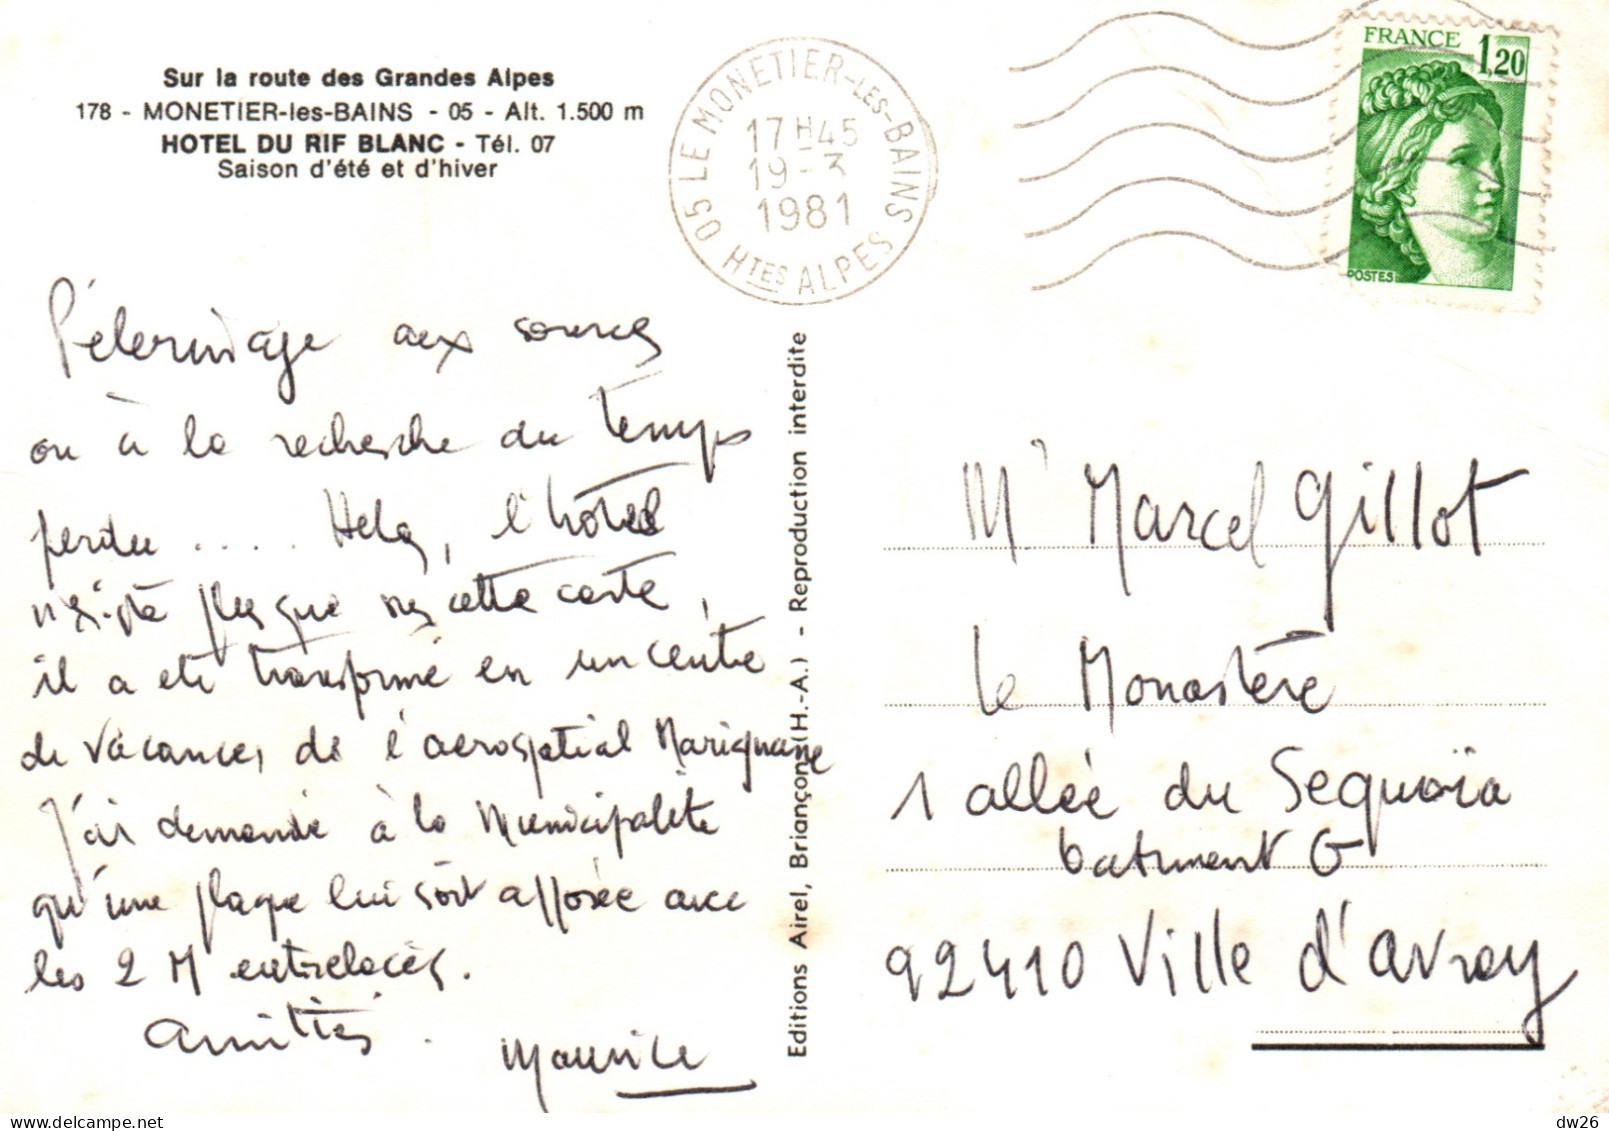 Sur la route des Grandes Alpes
178 - MONETIER-les-BAINS - 05 - Alt. 1.500 m
HOTEL DU RIF BLANC - Tél. 07
Saison d'été et d'hiver
05 LE MONETIER-LES-BAINS
17H45
19-3
1981
HTES ALPES
FRANCE 1,20
POSTES
Pélerinage aux sources
ou à la recherche du temps
perdu .... Helas, l'hôtel
n'existe plus que sur cette carte,
il a eté transformé en un centre
de vacances de l'aerospatial Marignane
J'ai demandé à la Municipalité
qu'une plaque lui soit apposée avec
les 2 M entrelacés.
Amitiés.
Maurice
Editions Airel, Briançon (H.-A.) - Reproduction interdite
Mr Marcel Gillot
le Monastère
1 allée du Sequoïa
batiment G
92410 Ville d'avray
www.delcampe.net
dw26